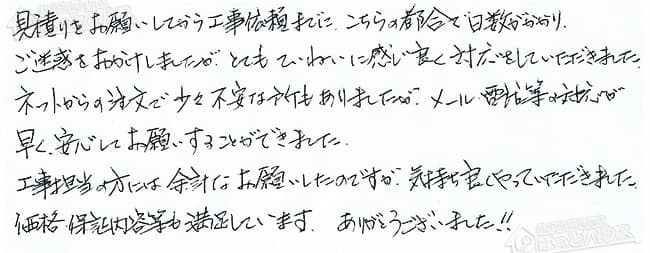 見積りをお願いしてから工事依頼までに、こちらの都合で日数がかかり、
ご迷惑をおかけしましたが、とてもていねいに感じ良く対応をしていただきました。
ネットからの注文で少々不安な所もありましたが、メール・電話等の対応が
早く、安心してお願いすることができました。
工事担当の方には余計なお願いしたのですが、気持ち良くやっていただきました。
価格・保証内容等も満足しています。ありがとうございました!!